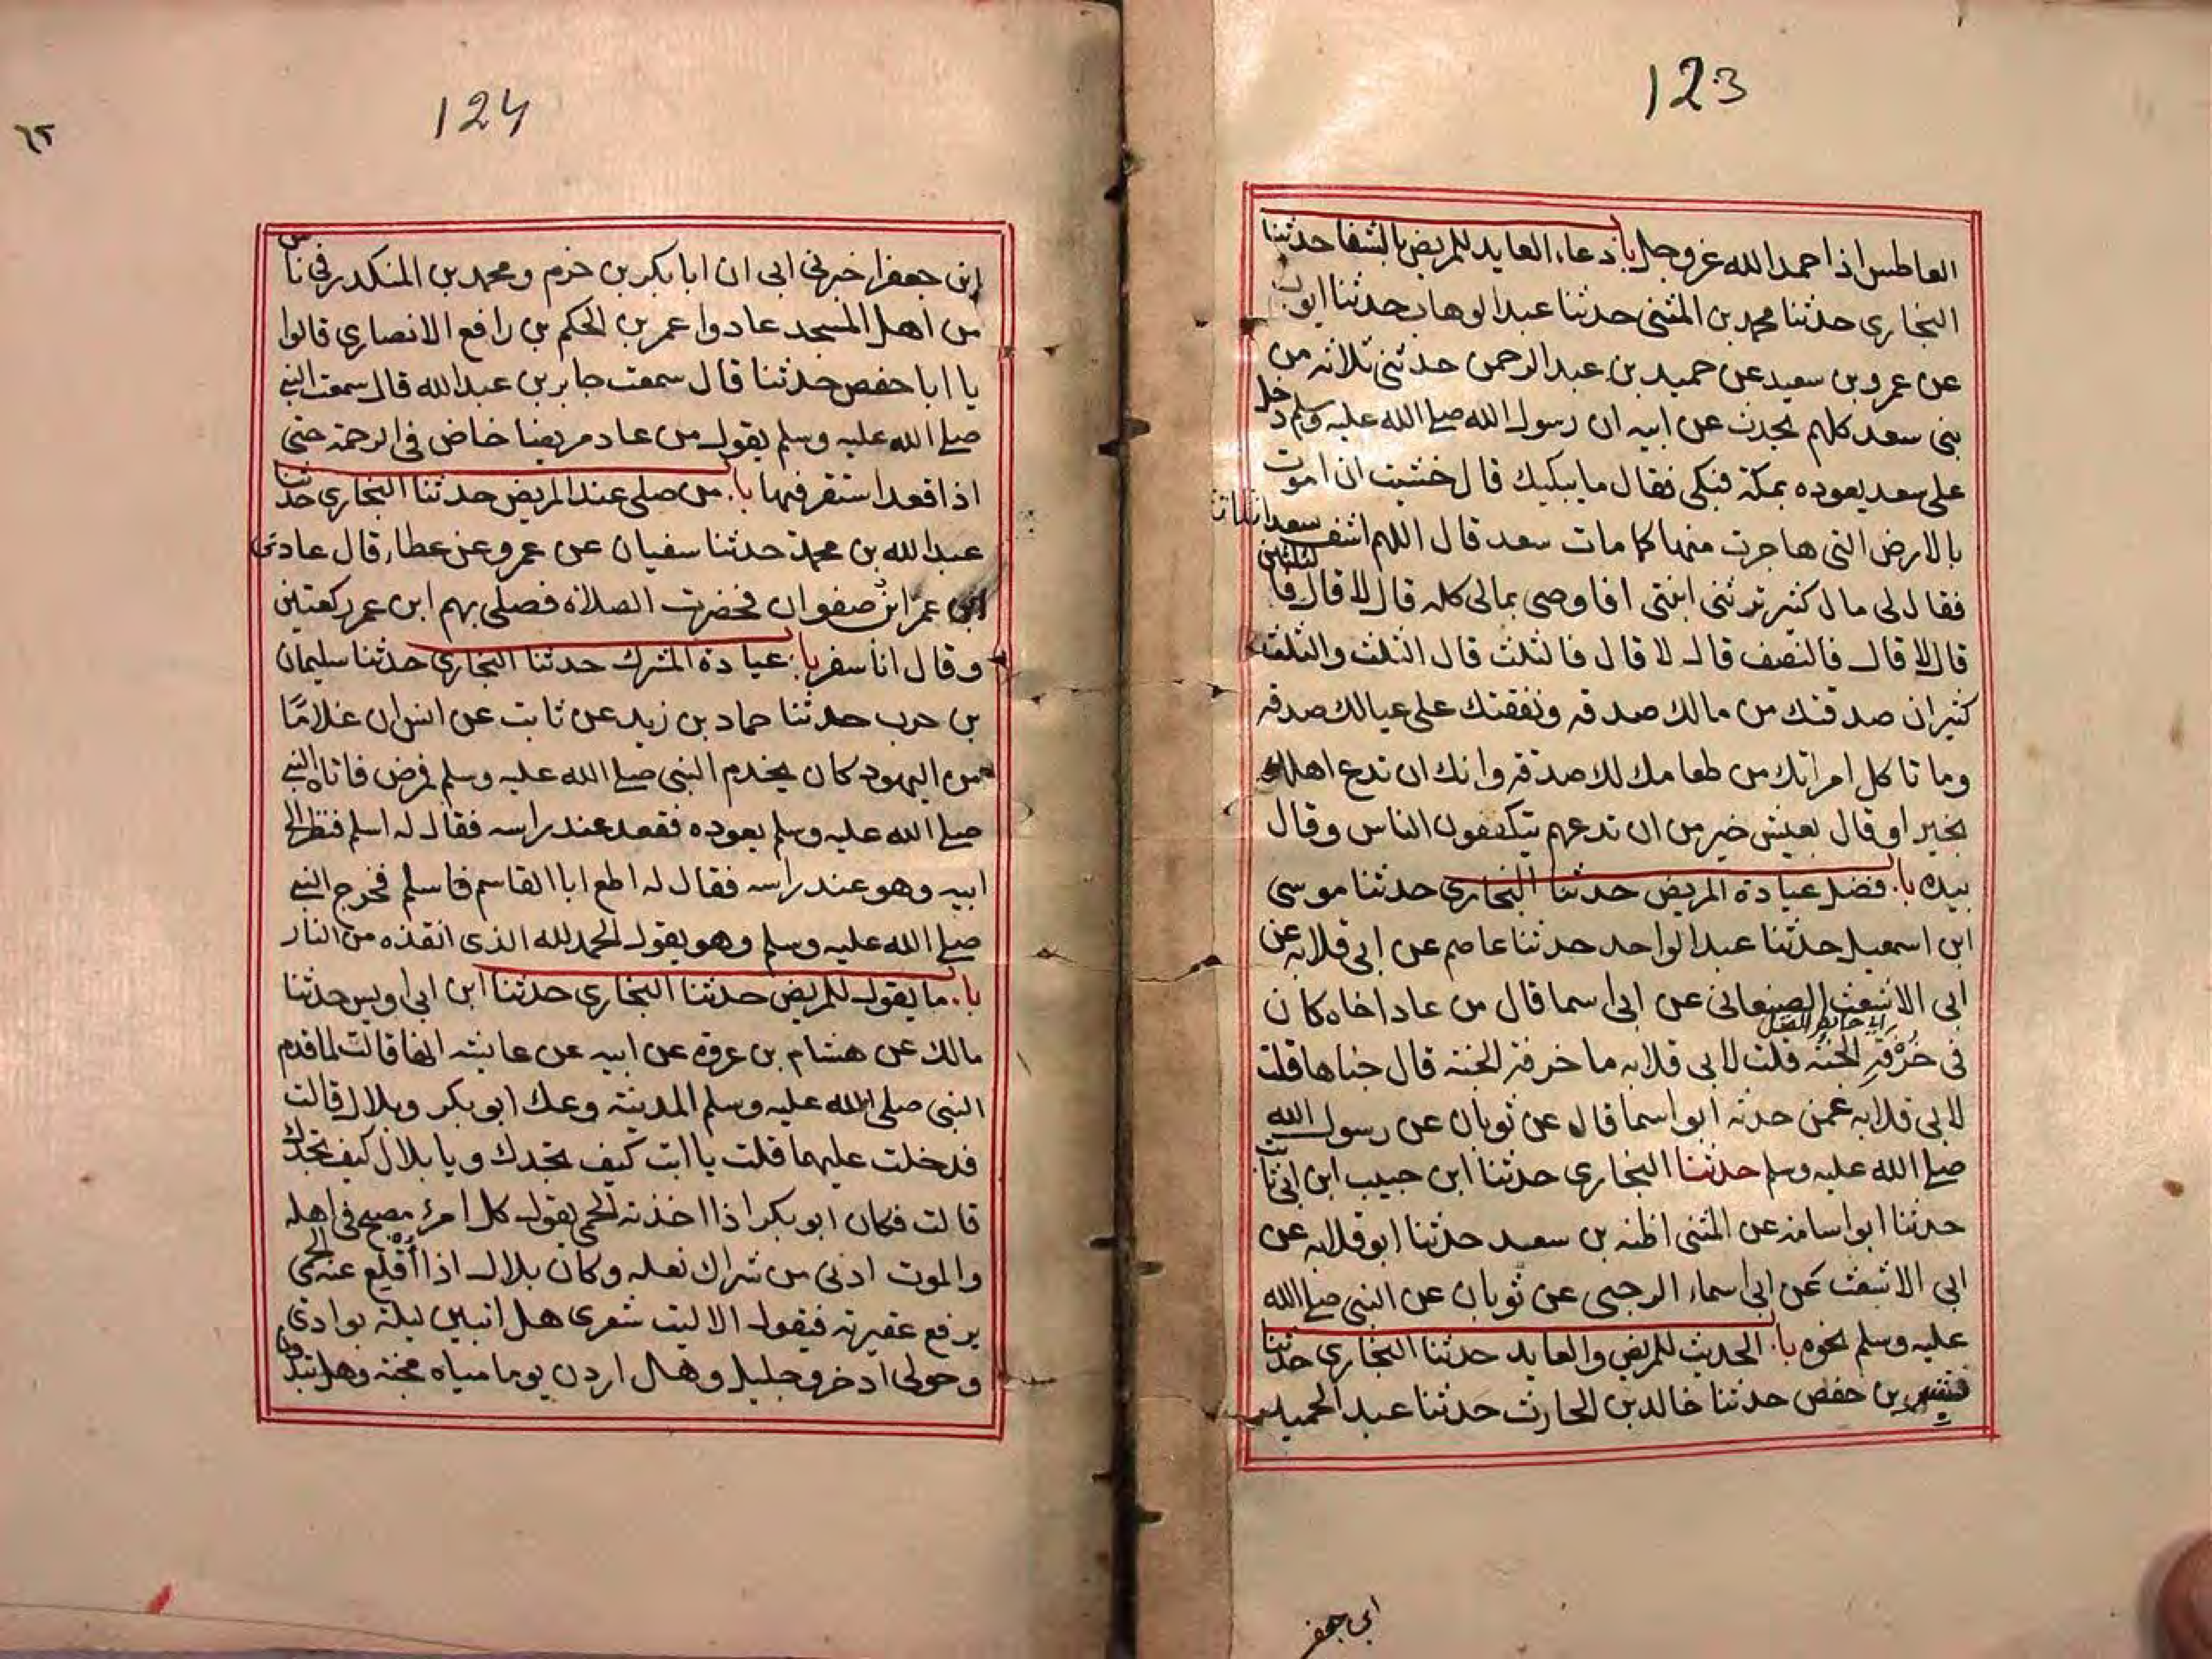 123
العاطس اذا حمد الله عز وجل باب دعاء العايد للمريض بالشفا حدثنا
البخاري حدثنا محمد بن المثنى حدثنا عبد الوهاب حدثنا ايوب
عن عمرو بن سعيد عن حميد بن عبد الرحمن حدثني ثلاثه من
بني سعد كلهم يحدث عن ابيه ان رسول الله صلى الله عليه وسلم دخل
على سعد يعوده بمكة فبكى فقال ما يبكيك قال خشيت ان اموت
بالارض التي هاجرت منها كما مات سعد قال اللهم اشف سعدا ثلاثا
فقال لي مال كثير ترثني ابنتي افاوصي بمالي كله قال لا قال فالثلثين
قال لا قال فالنصف قال لا قال فالثلث قال الثلث والثلث
كثير ان صدقتك من مالك صدقه ونفقتك على عيالك صدقه
وما تاكل امراتك من طعامك لك صدقه وانك ان تدع اهلك
بخير او قال بعيش خير من ان تدعهم يتكففون الناس وقال
بيده باب فضل عيادة المريض حدثنا البخاري حدثنا موسى
ابن اسمعيل حدثنا عبد الواحد حدثنا عاصم عن ابي قلابه عن
ابي الاشعث الصنعاني عن ابي اسما قال من عاد اخاه كان
في خُرْفَةِ الجنة قلت لابي قلابه ما خرفة الجنة قال جناها قلت
لابي قلابه عمن حدثه ابو اسما قال عن ثوبان عن رسول الله
صلى الله عليه وسلم حدثنا البخاري حدثنا ابن حبيب ابن ابي ثابت
حدثنا ابو اسامة عن المثنى اظنه بن سعيد حدثنا ابو قلابه عن
ابي الاشعث عن ابي اسماء الرحبي عن ثوبان عن النبي صلى الله
عليه وسلم نحوه باب الحديث للمريض والعايد حدثنا البخاري حدثنا
قيس بن حفص حدثنا خالد بن الحارث حدثنا عبد الحميد
ابن جعفر
124
٦٢
ابن جعفر اخبرني ابي ان ابا بكر بن حزم ومحمد بن المنكدر في ناس
من اهل المسجد عادوا عمر بن الحكم بن رافع الانصاري قالوا
يا ابا حفص حدثنا قال سمعت جابر بن عبد الله قال سمعت النبي
صلى الله عليه وسلم يقول من عاد مريضا خاض في الرحمة حتى
اذا قعد استقر فيها باب من صلى عند المريض حدثنا البخاري حدثنا
عبد الله بن محمد حدثنا سفيان عن عمرو عن عطاء قال عادني
ابن عمر ابن صفوان فحضرت الصلاة فصلى بهم ابن عمر ركعتين
وقال انا سفر باب عيادة المشرك حدثنا البخاري حدثنا سليمان
بن حرب حدثنا حماد بن زيد عن ثابت عن انس ان غلامًا
من اليهود كان يخدم النبي صلى الله عليه وسلم فمرض فاتاه النبي
صلى الله عليه وسلم يعوده فقعد عند راسه فقال له اسلم فنظر الى
ابيه وهو عند راسه فقال له اطع ابا القاسم فاسلم فخرج النبي
صلى الله عليه وسلم وهو يقول الحمد لله الذى انقذه من النار
باب ما يقول للمريض حدثنا البخاري حدثنا ابن ابي اويس حدثنا
مالك عن هشام بن عروة عن ابيه عن عايشه انها قالت لما قدم
النبي صلى الله عليه وسلم المدينة وعك ابو بكر وبلال قالت
فدخلت عليهما قلت يا ابت كيف تجدك ويا بلال كيف تجدك
قالت فكان ابو بكر اذا اخذته الحمى يقول كل امرئ مصبح في اهله
والموت ادنى من شراك نعله وكان بلال اذا أُقْلِع عنه الحمى
يرفع عقيرته فيقول الا ليت شعرى هل ابيتن ليلة بوادي
وحولي اذخر وجليل وهل اردن يوما مياه مجنه وهل يبدون